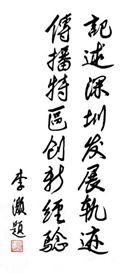 記述深圳发展軌迹
傳播特區创新經驗
李灏題